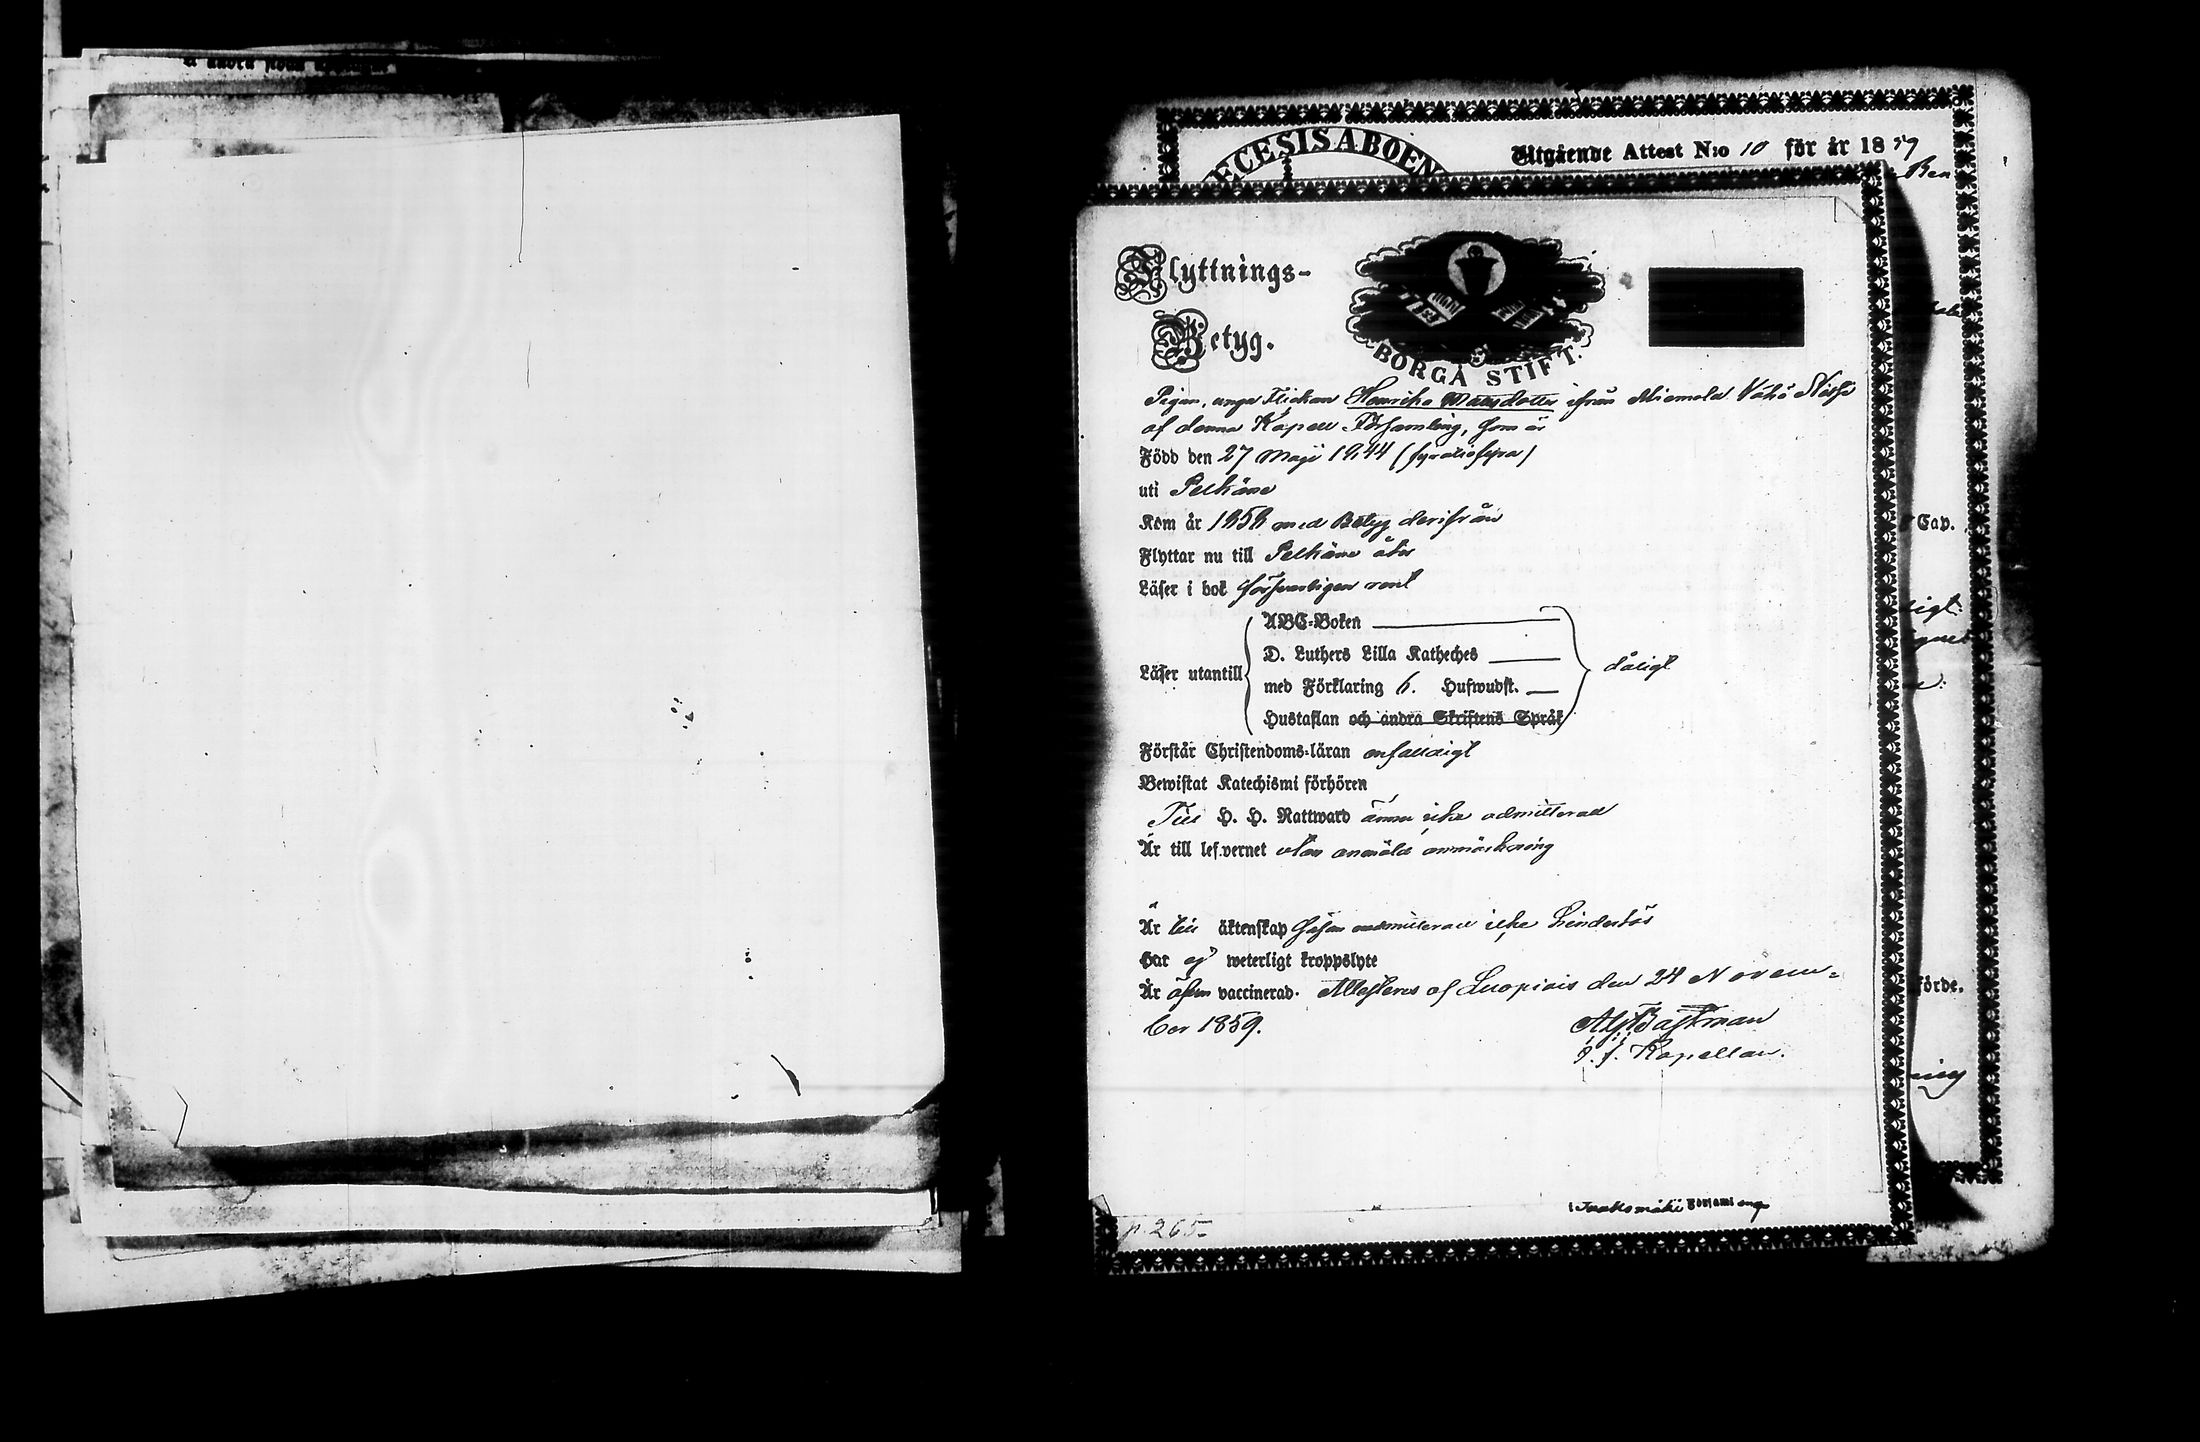 DIECESIS ABOEN
Utgående Attest N:o 10 för år 1859
Flyttnings-
Betyg.
BORGÅ STIFT.
Pigan, unga Flickan Henrika Matsdotter ifrån Miemola
af denna Kapell-Församling, som är
Född den 27 Maji 1844 (fyratiofyra)
uti Pelkäne
Kom år 1858 med Betyg derifrån
Flyttar nu till Pelkäne åter
Läser i bok försvarligen rent
ABC-Boken
D. Luthers Lilla Katheches
Läser utantill
med Förklaring 6. Hufwudst.
dåligt
Hustaflan och andra Skriftens Språk
Förstår Christendoms-läran enfaldigt
Bewistat Katechismi förhören
Till H. H. Nattward ännu icke admitterad
Är till lefvernet utan anmäld anmärkning
Är till äktenskap såsom oadmitterad icke hinderlös
Har ej weterligt kroppslyte
Är äfven vaccinerad. Attesteras af Luopiois den 24 Novem-
ber 1859.
Bastman
Kapellan.
i Tuulos Församling
p. 265
Cap.
förde.